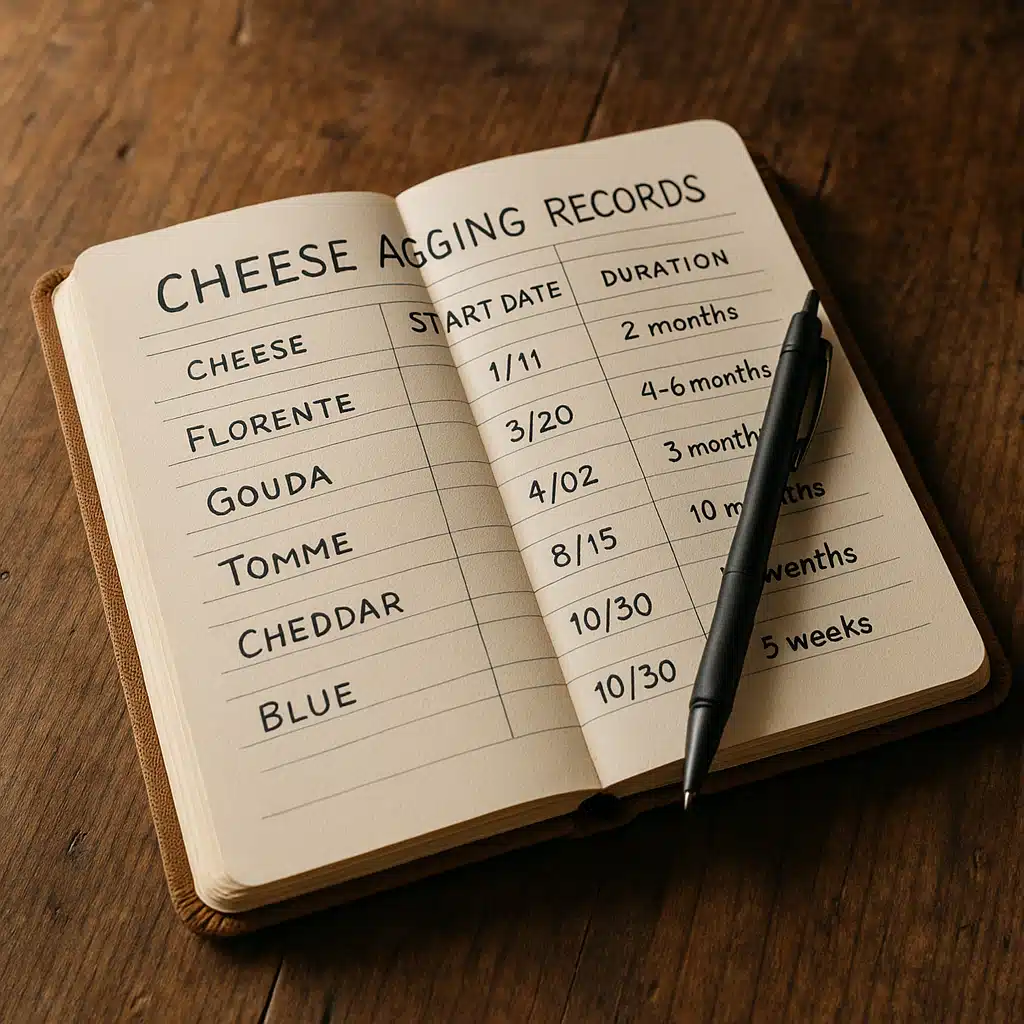 CHEESE AGGING RECORDS
CHEESE START DATE DURATION
FLORENTE 1/11 2 months
GOUDA 3/20 4-6 months
TOMME 4/02 3 month
CHEDDAR 8/15 10
BLUE 10/30
10/30 5 weeks